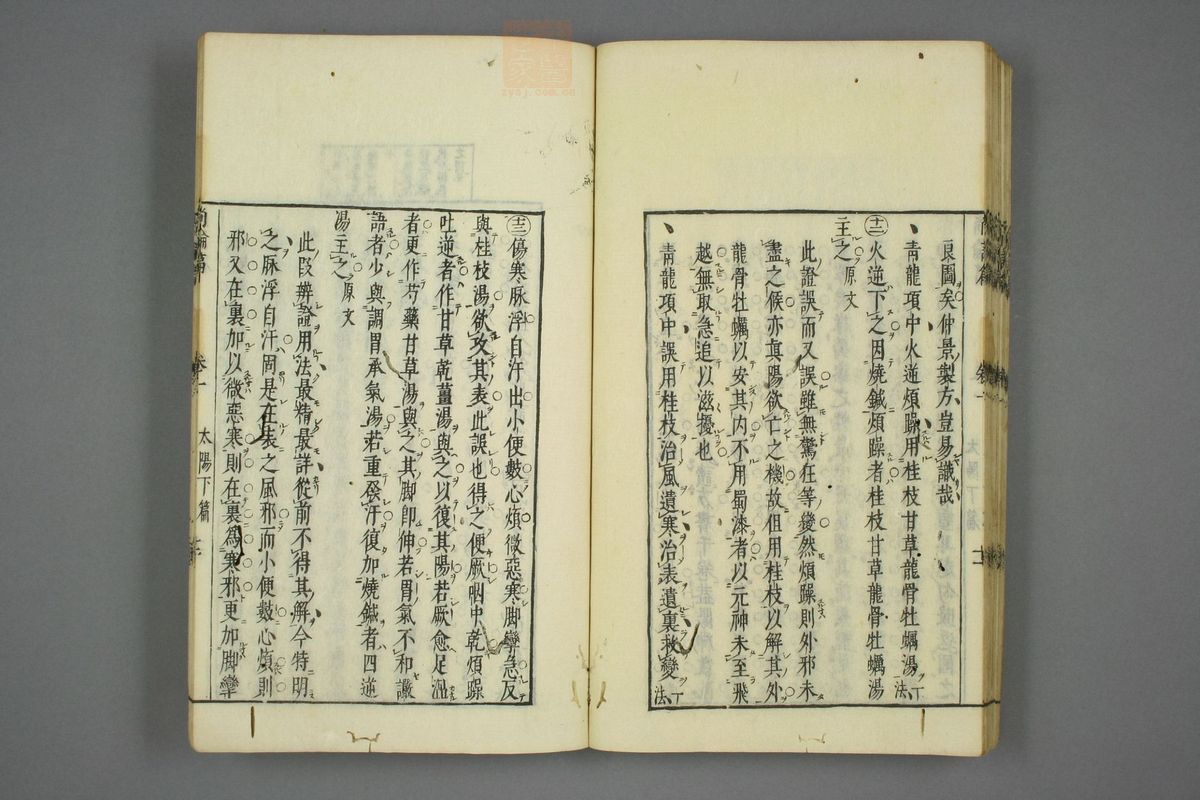 良圖矣仲景製方豈易識哉
青龍項中火逆煩躁用桂枝甘草龍骨牡蠣湯一法
㊉二火逆下之因燒鍼煩躁者桂枝甘草龍骨牡蠣湯
主之原文
此證誤而又誤雖無驚狂等變然煩躁則外邪未
盡之候亦眞陽欲亡之機故但用桂枝以解其外
龍骨牡蠣以安其内不用蜀漆者以元神未至飛
越無取急追以滋擾也
靑龍項中誤用桂枝治風遺寒治表遺裏救變一法
㊉三傷寒脉浮自汗出小便數心煩微惡寒脚攣急反
與桂枝湯欲攻其表此誤也得之便厥咽中乾煩躁
吐逆者作甘草乾薑湯與之以復其陽若厥愈足溫
者更作芍藥甘草湯與之其脚卽伸若胃氣不和讝
語者少與調胃承氣湯若重發汗復加燒鍼者四逆
湯主之原文
此段辨證用法最精最詳從前不得其解今特明
之脉浮自汗固是在表之風邪而小便數心煩則
邪又在裏加以微惡寒則在裏爲寒邪更加脚攣
卷一
太陽下篇
zysj.com.cn